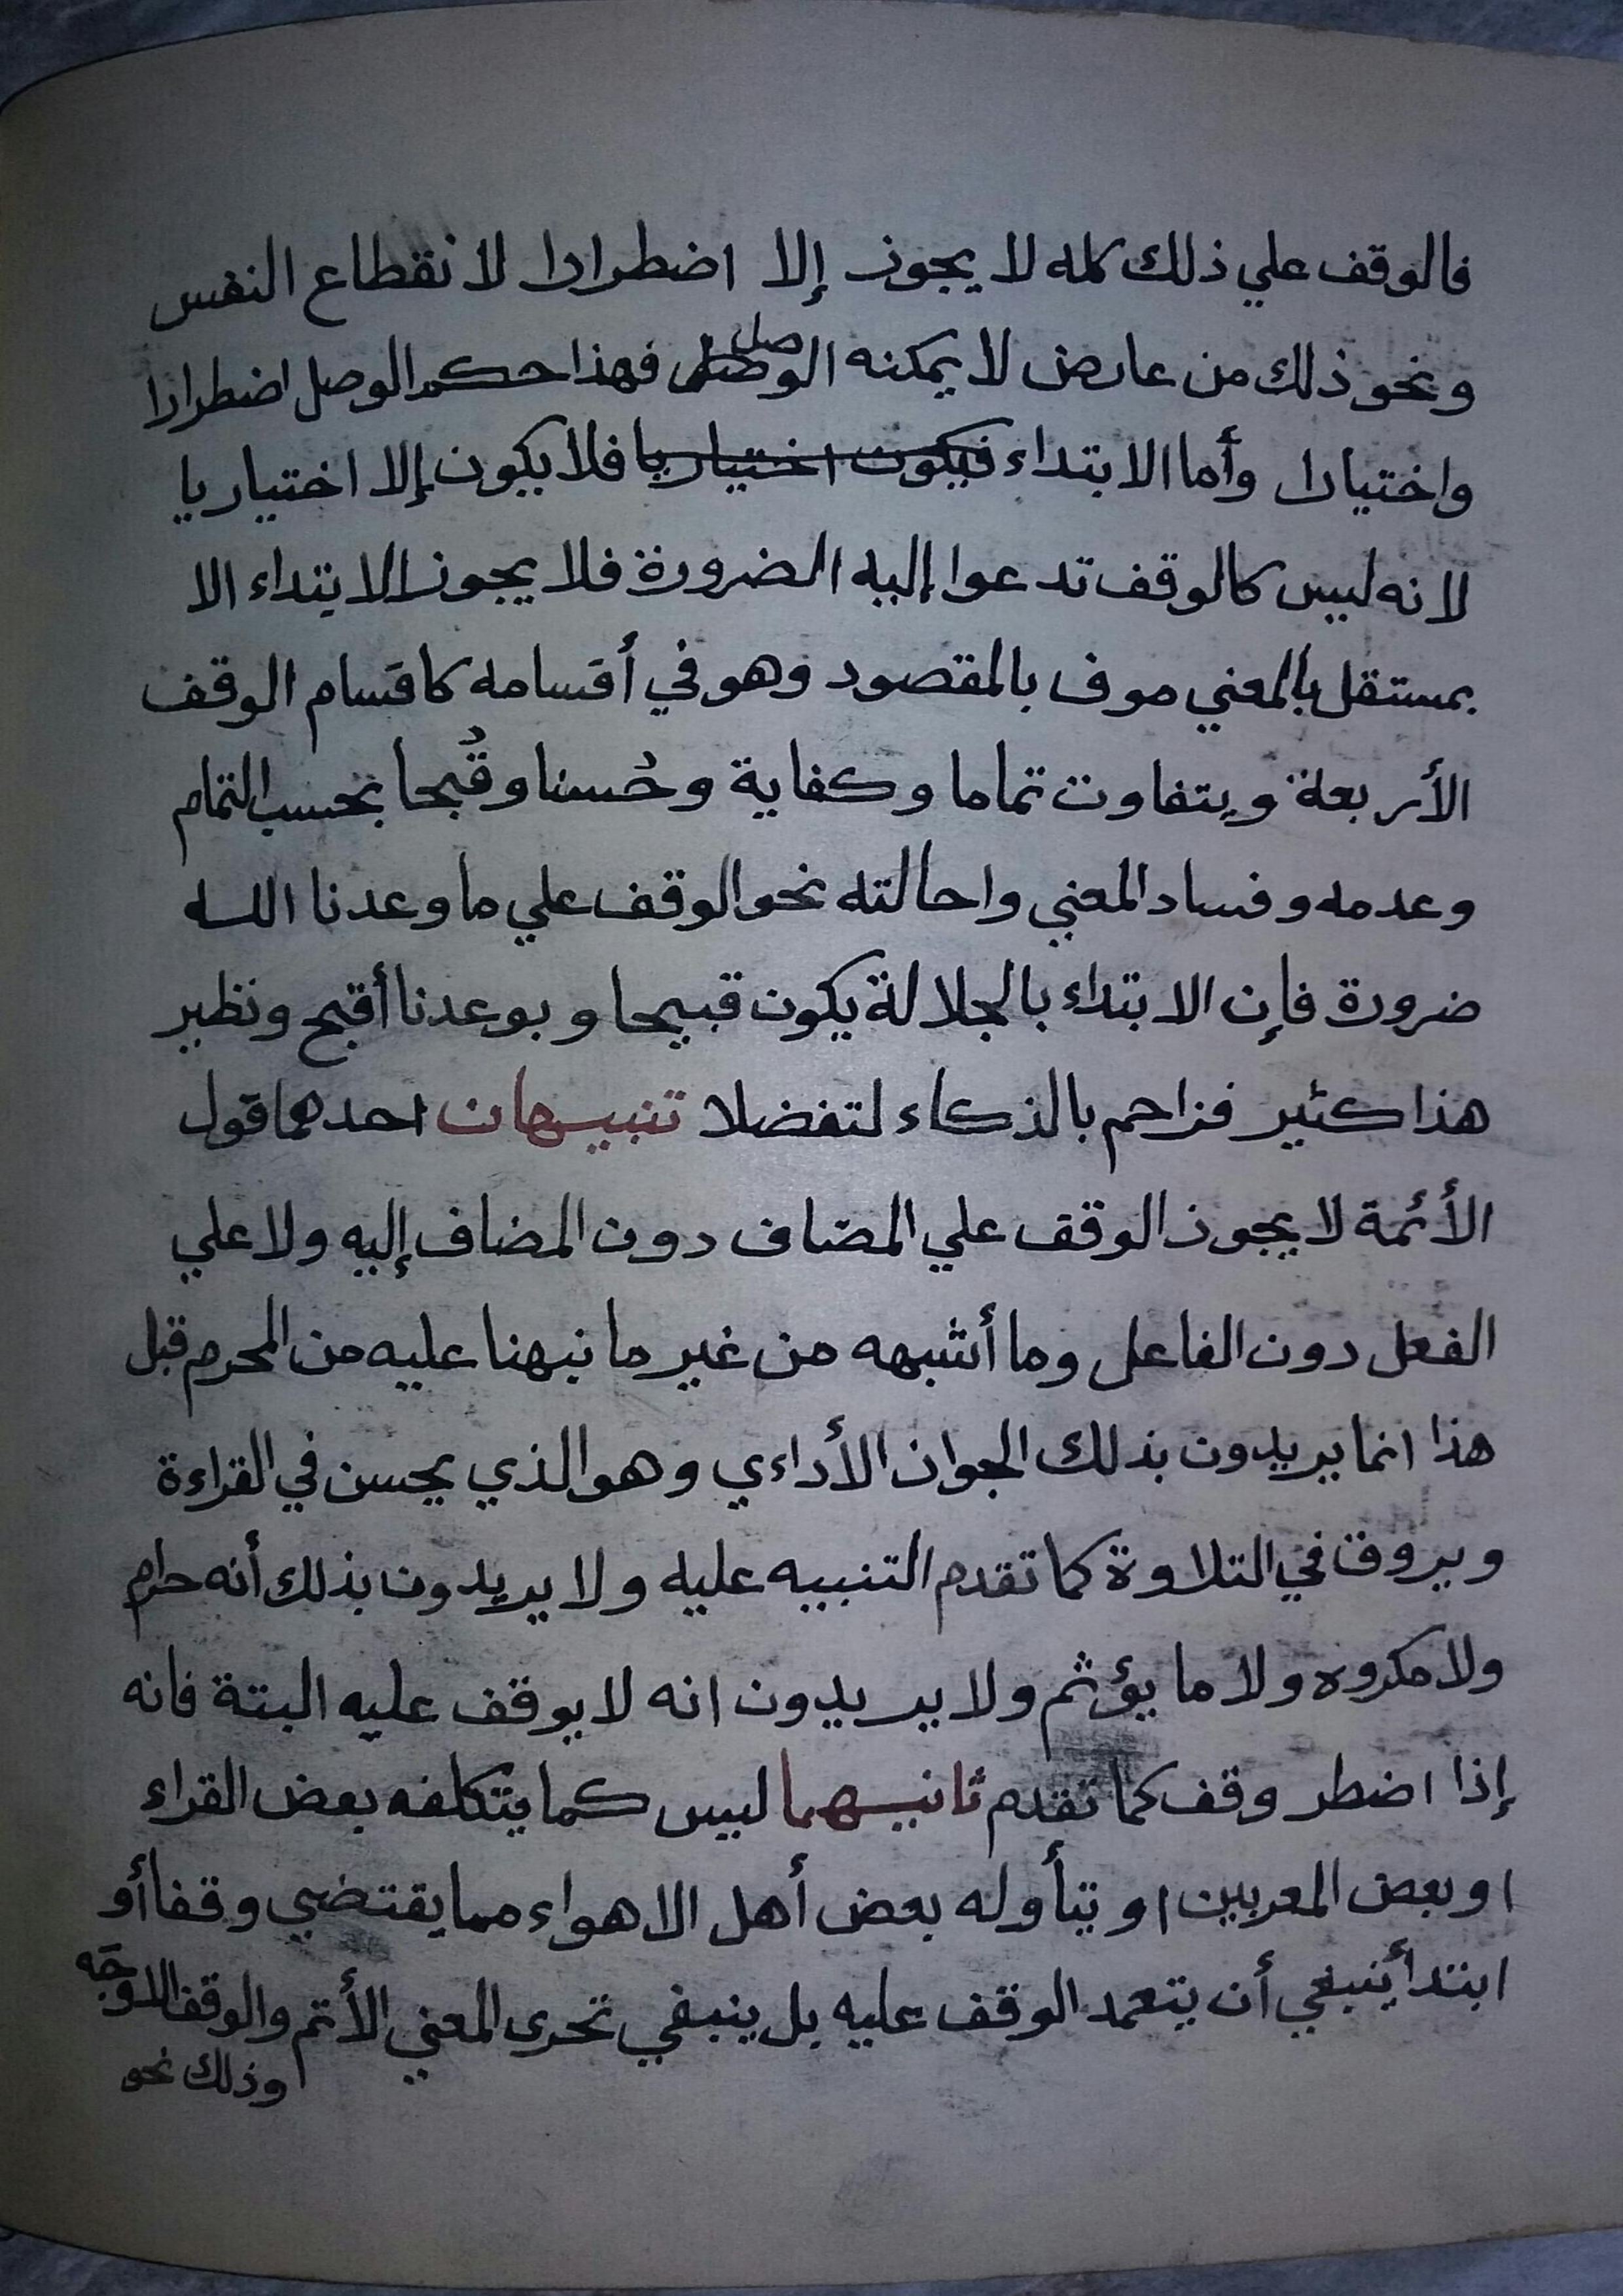 فالوقف علي ذلك كله لا يجوز إلا اضطرارا لانقطاع النفس
ونحو ذلك من عارض لا يمكنه الوصل فهذا حكم الوصل اضطرارا
واختيارا وأما الابتداء فيكون اختياريا فلا يكون إلا اختياريا
لانه ليس كالوقف تدعوا إليه الضرورة فلا يجوز الابتداء الا
بمستقل بالمعني موف بالمقصود وهو في أقسامه كاقسام الوقف
الأربعة ويتفاوت تماما وكفاية وحُسنا وقُبحا بحسب التمام
وعدمه وفساد المعني واحالته نحو الوقف علي ما وعدنا الله
ضرورة فإن الابتداء بالجلالة يكون قبيحا وبوعدنا أقبح ونظير
هذا كثير فزاحم بالذكاء لتفضلا تنبيهان احدهما قول
الأئمة لا يجوز الوقف علي المضاف دون المضاف إليه ولا علي
الفعل دون الفاعل وما أشبهه من غير ما نبهنا عليه من المحرم قبل
هذا انما يريدون بذلك الجواز الأداءي وهو الذي يحسن في القراءة
ويروق في التلاوة كما تقدم التنبيه عليه ولا يريدون بذلك أنه حرام
ولا مكروه ولا ما يؤثم ولا يريدون انه لا يوقف عليه البتة فانه
إذا اضطر وقف كما تقدم ثانيهما ليس كما يتكلفه بعض القراء
او بعض المعربين او يتأوله بعض أهل الاهواء مما يقتضي وقفا أو
ابتدأ ينبغي أن يتعمد الوقف عليه بل ينبغي تحرى المعني الأتم والوقف الاوجَه
وذلك نحو